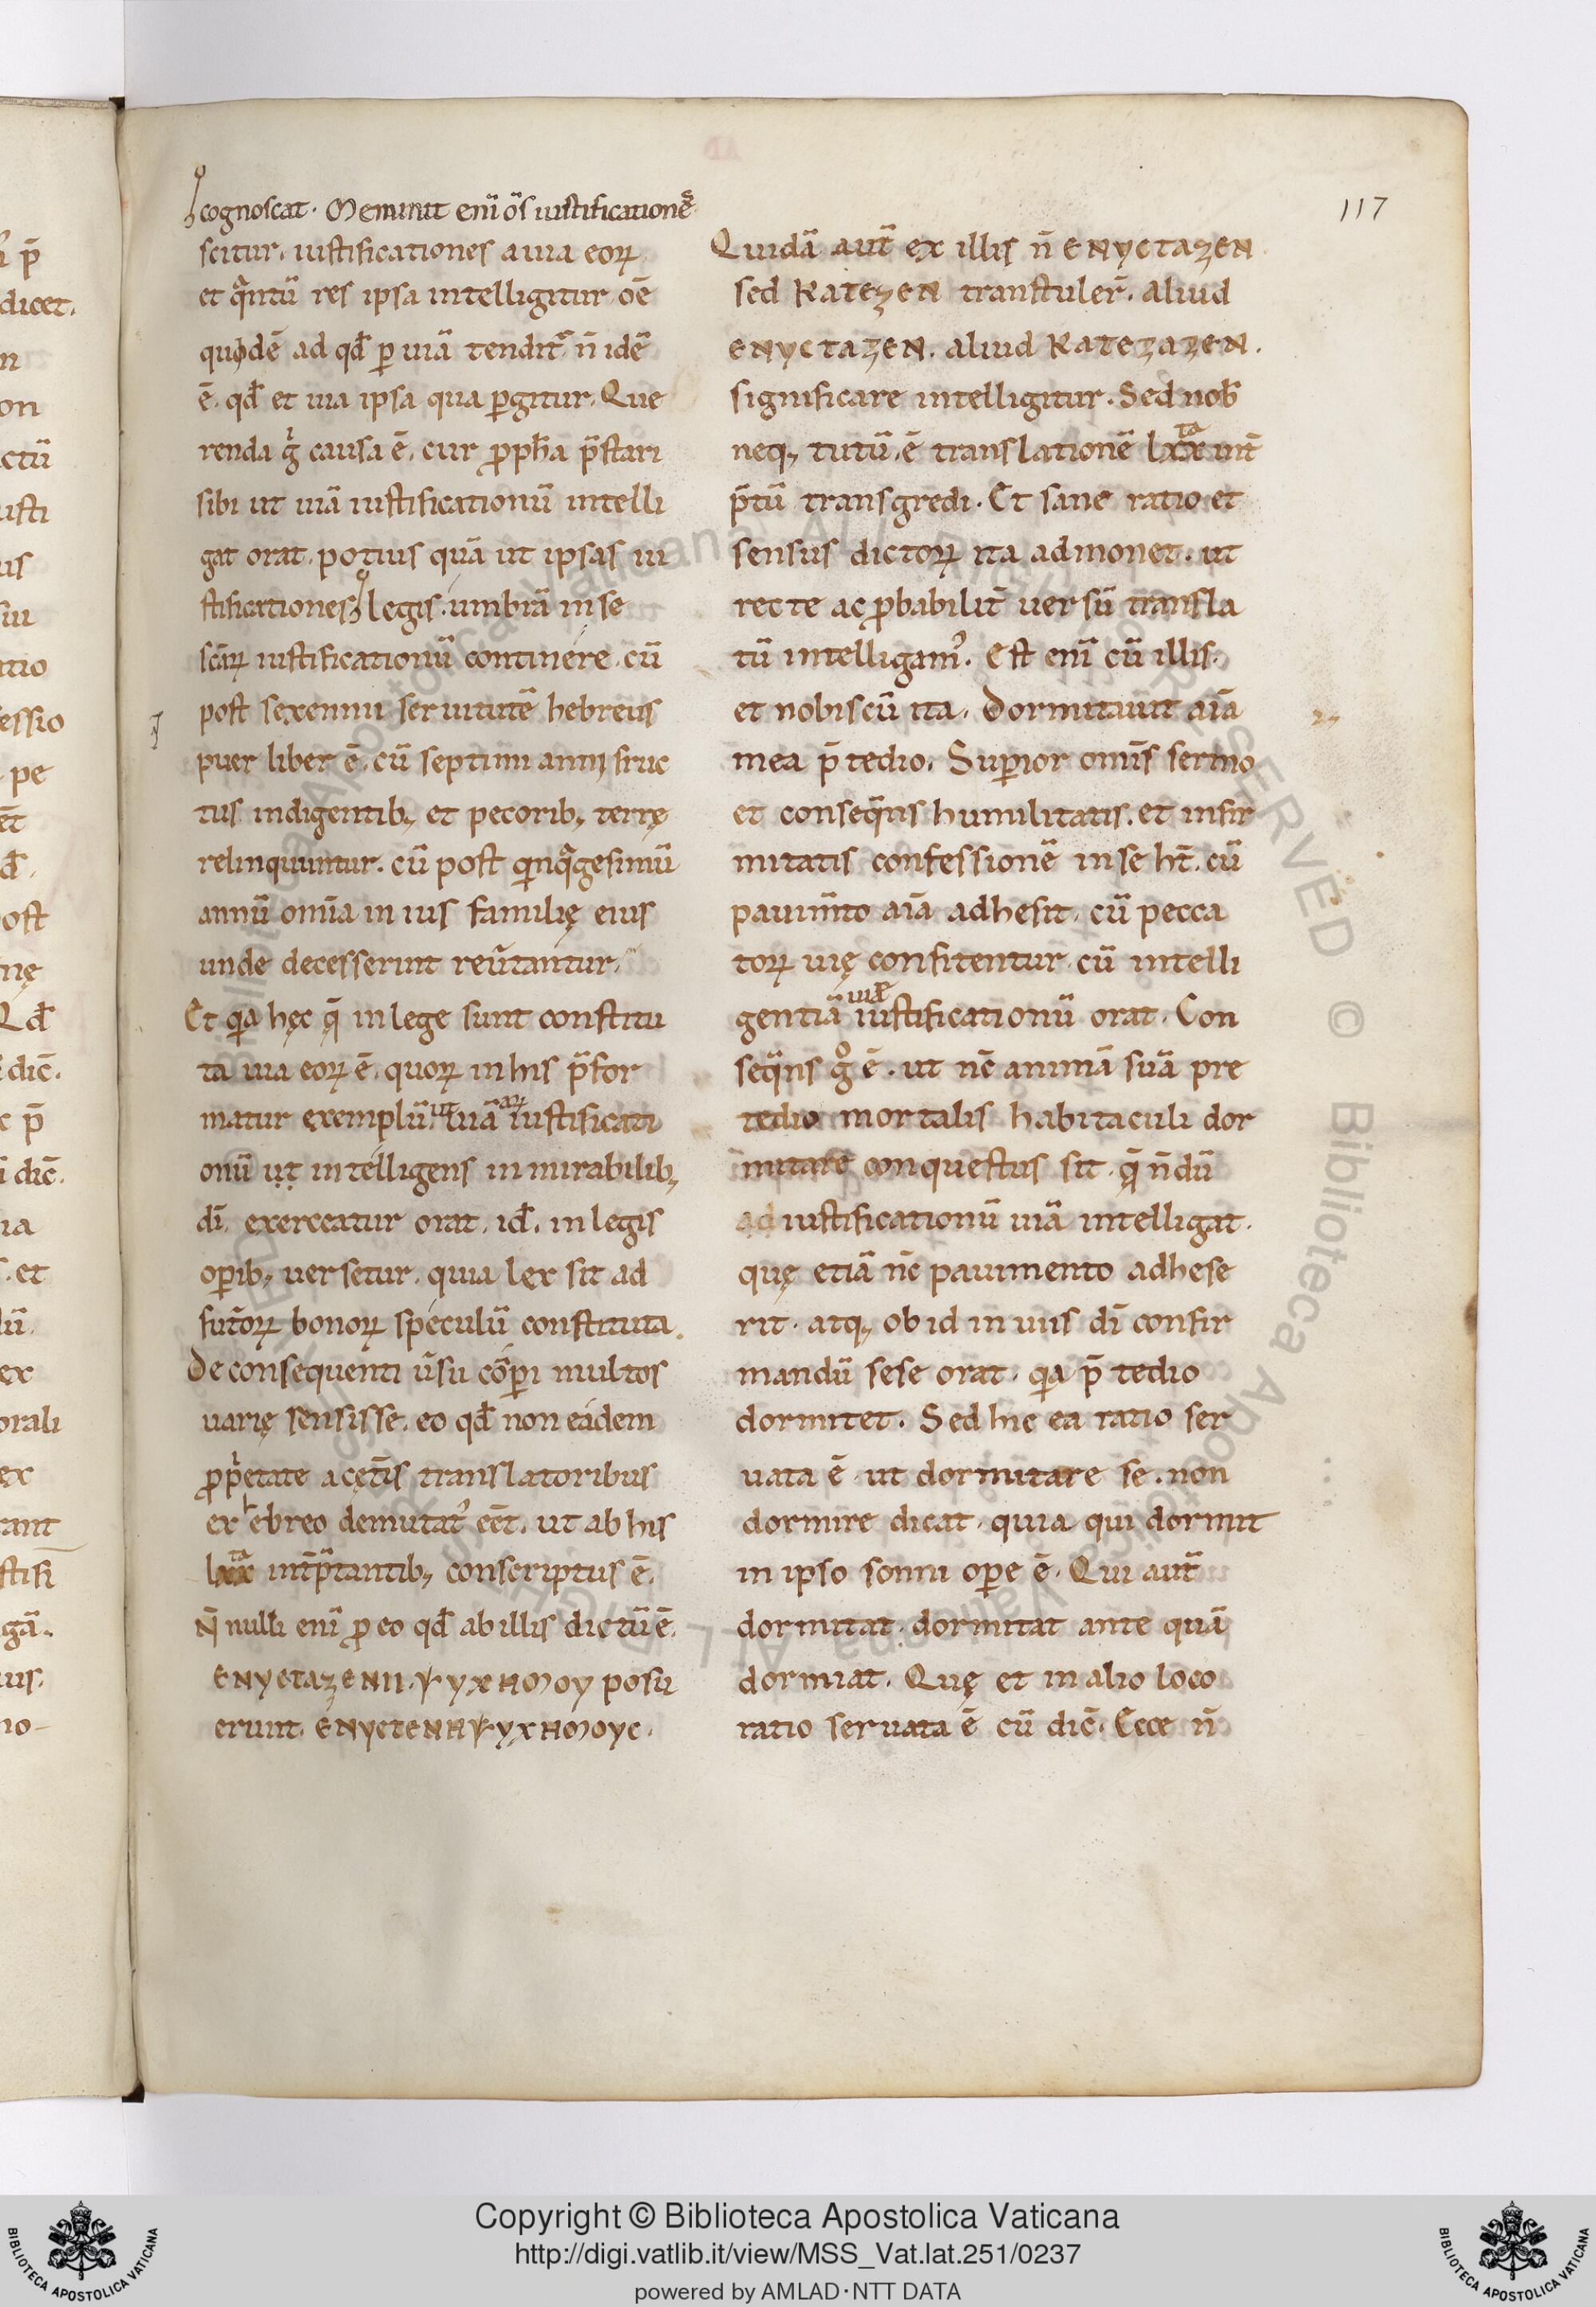 117
cognoscat. Meminit enī ōs iustificationē
scitur. iustificationes a uia eoꝝ
et qͣntū res ipsa intelligitur. oē
quodē ad qđ p uiā tendit᷑ n̄ idē
ē. qđ et uia ipsa qua ꝑgitur. Que
renda gͥ causa ē. cur ꝓpħa p̄stari
sibi ut uiā iustificationū intelli
gat orat. potius quā ut ipsas iu
stificationes legis. umbrā in se
scāꝝ iustificationū continere. cū
post sexennii seruitutē hebreus
puer liber ē. cū septimi anni fruc
tus indigentibꝫ et pecoribꝫ terrę
relinquuntur. cū post qͥnqͣgesimū
annū omīa in ius familię eius
unde decesserunt reūtantur.
Et qͥa hęc q̄ in lege sunt constitu
ta uia eoꝝ ē. quoꝝ in his p̄for
matur exemplū. ut uiā aꝝ iustificati
onū ut intelligens in mirabilibꝫ
dī. exerceatur orat. id. in legis
opibꝫ uersetur. quia lex sit ad
futōꝝ bonoꝝ speculū constituta.
De consequenti ūsu cōpi multos
uarię sensisse. eo qđ non eadem
ꝓpͥetate a cętīs translatoribus
ex hebreo demutatꝰ eēt. ut ab his
lxxͭͣ int̄p̄tantibꝫ conscriptus ē.
N̄ nulli enī ꝓ eo qđ ab illis dictū ē.
ENYCTAZENII. ΨYXHMOY posu
erunt. ENYCTENHΨYXHMOYC.
Quidā aut̄ ex illis n̄ ENYCTAZEN
sed KATEZEN transtuler̄. aliud
ENYCTAZEN. aliud KATEZAZEN.
significare intelligitur. Sed nob̄
neqꝫ tutū ē translationē lxxͭͣ int̄
p̄tū transgredi. Et sane ratio et
sensus dictoꝝ ita admonet. ut
recte ac ꝓbabilit̄ uersū transla
tū intelligamꝰ. Est enī cū illis.
et nobiscū ita. Dormitauit aīa
mea p̄ tedio. Supior omīs sermo
et conseqͣns humilitatis. et infir
mitatis confessionē in se ht̄. cū
pauim̄to aīa adhesit. cū pecca
toꝝ uię confitentur. cū intelli
gentiā uię iustificationū orat. Con
seqͣns gͦ ē. ut nc̄ animā suā pre
tedio mortalis habitaculi dor
mitare conquestus sit. q̄ n̄dū
ad iustificationū uiā intelligat.
quę etiā nc̄ pauimento adhese
rit. atqꝫ ob id in uiis dī confir
mandū sese orat. qͥa p̄ tedio
dormitet. Sed hic ea ratio ser
uata ē. ut dormitare se. non
dormire dicat. quia qui dormit
in ipso somni ope ē. Qui aut̄
dormitat. dormitat ante quā
dormiat. Quę et in alio loco
ratio seruata ē cū dic̄. Ecce n̄
Copyright © Biblioteca Apostolica Vaticana
http://digi.vatlib.it/view/MSS_Vat.lat.251/0237
powered by AMLAD·NTT DATA